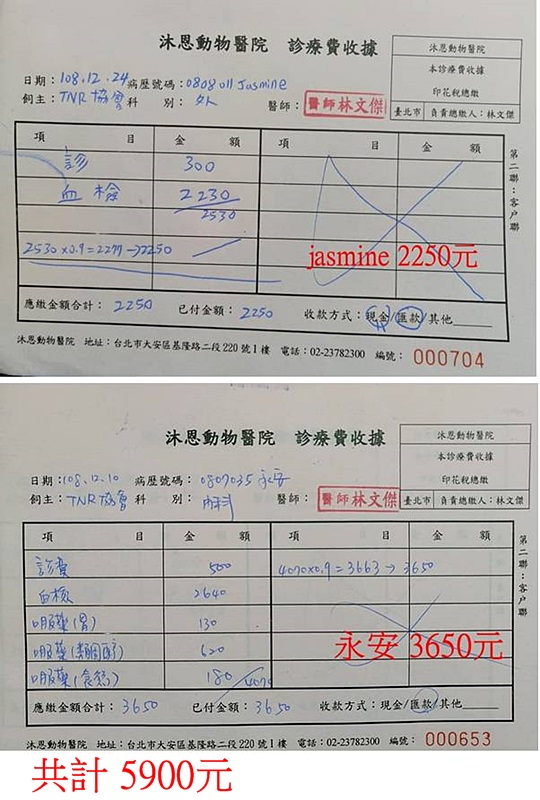 沐恩動物醫院 診療費收據
沐恩動物醫院
本診療費收據
印花稅總繳
臺北市 負責總繳人：林文傑
日期：108.12.24 病歷號碼：0808011 Jasmine
飼主：TNR協會 科 別：外 醫師：醫師林文傑
項 目 金 額 項 目 金 額
診 300
血檢 2230
2530
2530×0.9=2277→2250
jasmine 2250元
第二聯：客戶聯
應繳金額合計：2250 已付金額：2250 收款方式：現金/匯款/其他
沐恩動物醫院 地址：台北市大安區基隆路二段220號1樓 電話：02-23782300 編號：000704
沐恩動物醫院 診療費收據
沐恩動物醫院
本診療費收據
印花稅總繳
臺北市 負責總繳人：林文傑
日期：108.12.10 病歷號碼：0807035 永安
飼主：TNR協會 科 別：內科 醫師：醫師林文傑
項 目 金 額 項 目 金 額
診費 500 4070×0.9=3663→3650
血檢 2640
口服藥(胃) 130
口服藥(類固醇) 620
口服藥(食慾) 180 4070
永安 3650元
第二聯：客戶聯
應繳金額合計：3650 已付金額：3650 收款方式：現金/匯款/其他
沐恩動物醫院 地址：台北市大安區基隆路二段220號1樓 電話：02-23782300 編號：000653
共計 5900元